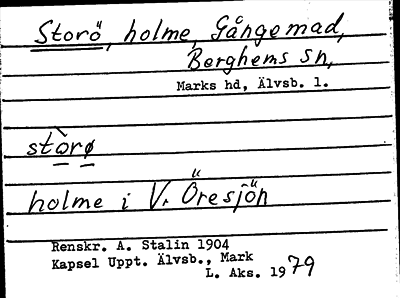 Storö, holme, Gångemad,
Berghems sn,
Marks hd, Älvsb. l.
stòrø
holme i V. Öresjön
Renskr. A. Stalin 1904
Kapsel Uppt. Älvsb., Mark
L. Aks. 1979